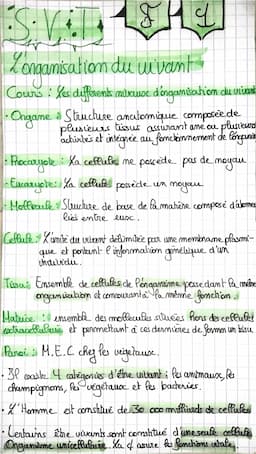 S.V.T
L'organisation du vivant
Cours : Les différents niveaux d'organisation du vivant
• Organe : Structure anatomique composée de
plusieurs tissus assurant une ou plusieurs
activités et intégrée au fonctionnement de l'organisme
• Procaryote : La cellule ne possède pas de noyau
• Eucaryote : La cellule possède un noyau
• Molécule : Structure de base de la matière composé d'atomes
liés entre eux.
Cellule : L'unité du vivant délimitée par une membrane plasmi-
que et portant l'information génétique d'un
individu.
Tissu : Ensemble de cellules de l'organisme possédant la même
organisation et concourants à la même fonction.
Matrice : ensemble des molécules situées hors des cellules
extracellulaire et permettant à ces dernières de former un tissu
Paroi : M.E.C chez les végétaux.
• Il existe 4 catégories d'être vivant : les animaux, les
champignons, les végétaux et les bactéries.
• L'Homme est constitué de 30 000 milliards de cellules
• Certains être vivants sont constitué d'une seule cellule
Organisme unicellulaire. La assure les fonctions vitale